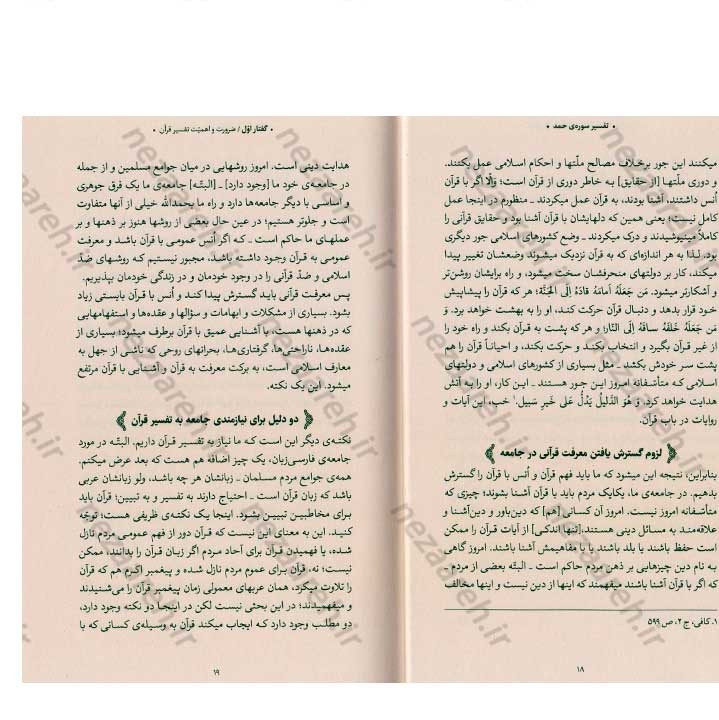 • تفسیر سوره‌ی حمد •
میکنند این جور برخلاف مصالح ملّتها و احکام اسلامی عمل بکنند.
و دوری ملّتها [از حقایق] به خاطر دوری از قرآن است؛ وَالّا اگر با قرآن
اُنس داشتند، آشنا بودند، به قرآن عمل میکردند ـ منظورم در اینجا عمل
کامل نیست؛ یعنی همین که دلهایشان با قرآن آشنا بود و حقایق قرآنی را
کاملاً مینیوشیدند و درک میکردند ـ وضع کشورهای اسلامی جور دیگری
بود. لذا به هر اندازه‌ای که به قرآن نزدیک میشوند وضعشان تغییر پیدا
میکند، کار بر دولتهای منحرفشان سخت میشود، و راه برایشان روشن‌تر
و آشکارتر میشود. مَن جَعَلَهُ اَمامَهُ قادَهُ اِلَی الجَنَّة؛ هر که قرآن را پیشاپیش
خود قرار بدهد و دنبال قرآن حرکت کند، او را به بهشت خواهد برد. وَ
مَن جَعَلَهُ خَلفَهُ ساقَهُ اِلَی النّار؛ و هر که پشت به قرآن بکند و راه خود را
از غیر قرآن بگیرد و انتخاب بکند و حرکت بکند، و احیاناً قرآن را هم
پشت سر خودش بکشد ـ مثل بسیاری از کشورهای اسلامی و دولتهای
اسلامی که متأسّفانه امروز این جور هستند ـ این کار، او را به آتش
هدایت خواهد کرد. وَ هُوَ الدَّلیلُ یَدُلُّ عَلی خَیرِ سَبیل.۱ خب، این آیات و
روایات در باب قرآن.
لزوم گسترش یافتن معرفت قرآنی در جامعه
بنابراین، نتیجه این میشود که ما باید فهم قرآن و اُنس با قرآن را گسترش
بدهیم. در جامعه‌ی ما، یکایک مردم باید با قرآن آشنا بشوند؛ چیزی که
متأسّفانه امروز نیست. امروز آن کسانی [هم] که دین‌باور و دین‌آشنا و
علاقه‌مند به مسائل دینی هستند،[تنها اندکی] از آیات قرآن را ممکن
است حفظ باشند یا بلد باشند یا با مفاهیمش آشنا باشند. امروز گاهی
به نام دین چیزهایی بر ذهن مردم حاکم است ـ البتّه بعضی از مردم ـ
که اگر با قرآن آشنا باشند میفهمند که اینها از دین نیست و اینها مخالف
۱. کافی، ج ۲، ص ۵۹۹
۱۸
• گفتار اوّل / ضرورت و اهمیّت تفسیر قرآن •
هدایت دینی است. امروز روشهایی در میان جوامع مسلمین و از جمله
در جامعه‌ی خود ما [وجود دارد] ـ [البتّه] جامعه‌ی ما یک فرق جوهری
و اساسی با دیگر جامعه‌ها دارد و راه ما بحمدالله خیلی از آنها متفاوت
است و جلوتر هستیم؛ در عین حال بعضی از روشها هنوز بر ذهنها و بر
عملهای ما حاکم است ـ که اگر اُنس عمومی با قرآن باشد و معرفت
عمومی به قرآن وجود داشته باشد، مجبور نیستیم که روشهای ضدّ
اسلامی و ضدّ قرآنی را در وجود خودمان و در زندگی خودمان بپذیریم.
پس معرفت قرآنی باید گسترش پیدا کند و اُنس با قرآن بایستی زیاد
بشود. بسیاری از مشکلات و ابهامات و سؤالها و عقده‌ها و استفهامهایی
که در ذهنها هست، با آشنایی عمیق با قرآن برطرف میشود؛ بسیاری از
عقده‌ها، ناراحتی‌ها، گرفتاری‌ها، بحرانهای روحی که ناشی از جهل به
معارف اسلامی است، به برکت معرفت به قرآن و آشنایی با قرآن مرتفع
میشود. این یک نکته.
دو دلیل برای نیازمندی جامعه به تفسیر قرآن
نکته‌ی دیگر این است که ما نیاز به تفسیر قرآن داریم. البتّه در مورد
جامعه‌ی فارسی‌زبان، یک چیز اضافه هم هست که بعد عرض میکنم.
همه‌ی جوامع مردم مسلمان ـ زبانشان هر چه باشد، ولو زبانشان عربی
باشد که زبان قرآن است ـ احتیاج دارند به تفسیر و به تبیین؛ قرآن باید
برای مخاطبین تبیین بشود. اینجا یک نکته‌ی ظریفی هست؛ توجّه
کنید. این به معنای این نیست که قرآن دور از فهم عمومی مردم نازل
شده، یا فهمیدن قرآن برای آحاد مردم اگر زبان قرآن را بدانند، ممکن
نیست؛ نه، قرآن برای عموم مردم نازل شده و پیغمبر اکرم هم که قرآن
را تلاوت میکرد، همان عربهای معمولی زمان پیغمبر قرآن را می‌شنیدند
و میفهمیدند؛ در این بحثی نیست لکن در اینجا دو نکته وجود دارد،
دو مطلب وجود دارد که ایجاب میکند قرآن به وسیله‌ی کسانی که با
۱۹
nezareh.ir
nezareh.ir
nezareh.ir
nezareh.ir
nezareh.ir
nezareh.ir